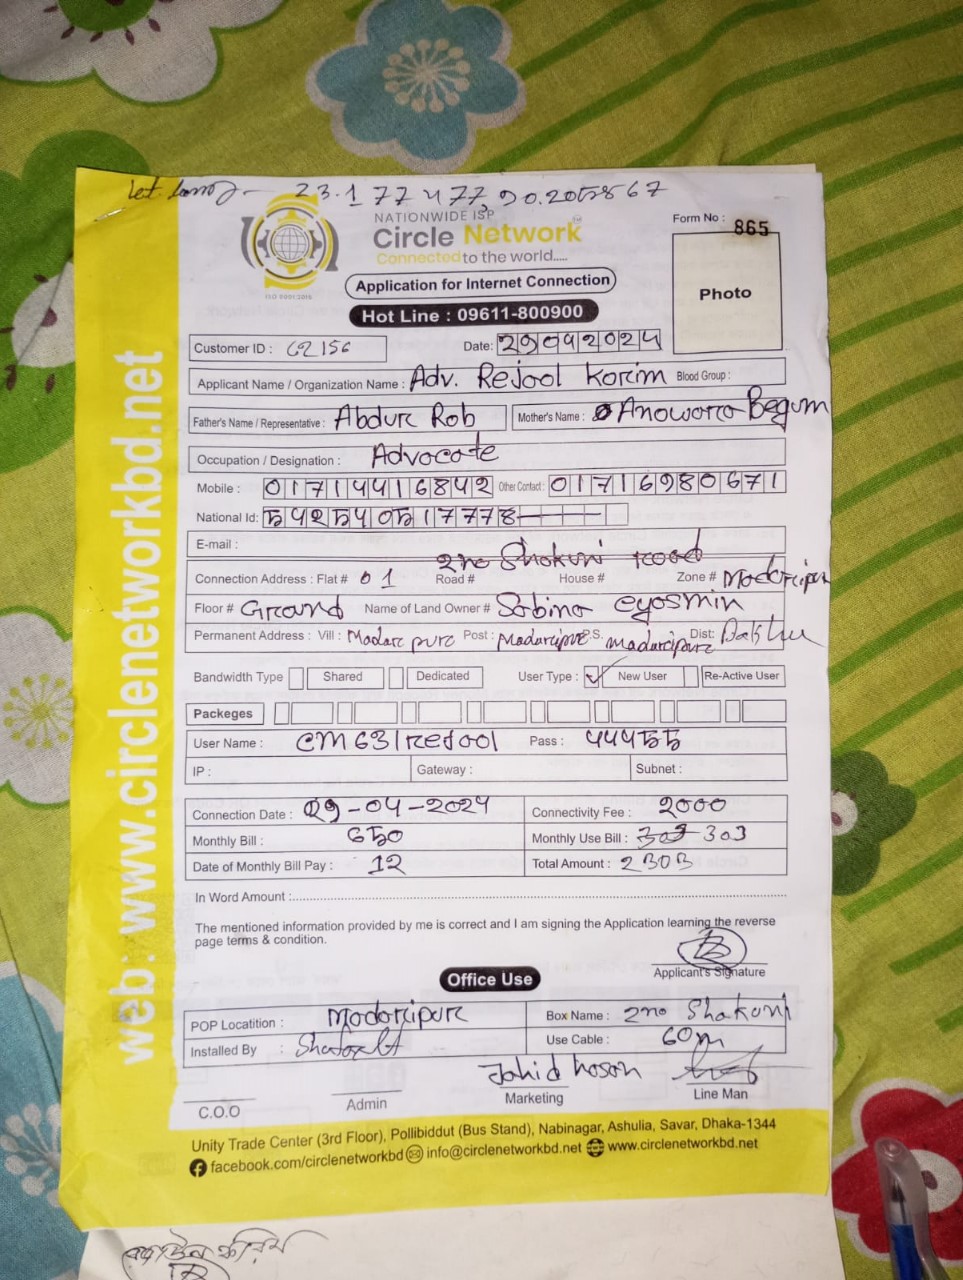 23.177477,90.205867
NATIONWIDE ISP
Circle Network
Connected to the world.....
ISO 9001:2015
Form No : 865
Photo
Application for Internet Connection
Hot Line : 09611-800900
Customer ID : 62156 Date: 29042024
Applicant Name / Organization Name : Adv. Rejool Korim Blood Group :
Father's Name / Representative : Abdur Rob Mother's Name : Anowara Begum
Occupation / Designation : Advocate
Mobile : 01714416842 Other Contact : 01716980671
National Id: 542540517778
E-mail :
2no Shokuni road
Connection Address : Flat # 01 Road # House # Zone # Madaripur
Floor # Ground Name of Land Owner # Sabina eyasmin
Permanent Address : Vill : Madaripur Post : Madaripur P.S. madaripur Dist:
Bandwidth Type Shared Dedicated User Type : New User Re-Active User
Packeges
User Name : CM631rejool Pass : 44455
IP : Gateway : Subnet :
Connection Date : 29-04-2024 Connectivity Fee : 2000
Monthly Bill : 650 Monthly Use Bill : 303
Date of Monthly Bill Pay : 12 Total Amount : 2303
In Word Amount :
The mentioned information provided by me is correct and I am signing the Application learning the reverse
page terms & condition.
Applicant's Signature
Office Use
POP Locatition : Madaripur Box Name : 2no Shakuni
Installed By : Use Cable : 60m
Jahid hosan
C.O.O Admin Marketing Line Man
Unity Trade Center (3rd Floor), Pollibiddut (Bus Stand), Nabinagar, Ashulia, Savar, Dhaka-1344
facebook.com/circlenetworkbd info@circlenetworkbd.net www.circlenetworkbd.net
web: www.circlenetworkbd.net
করিম